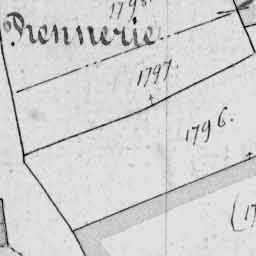 1798.
Prennerie
1797.
1796.
(17